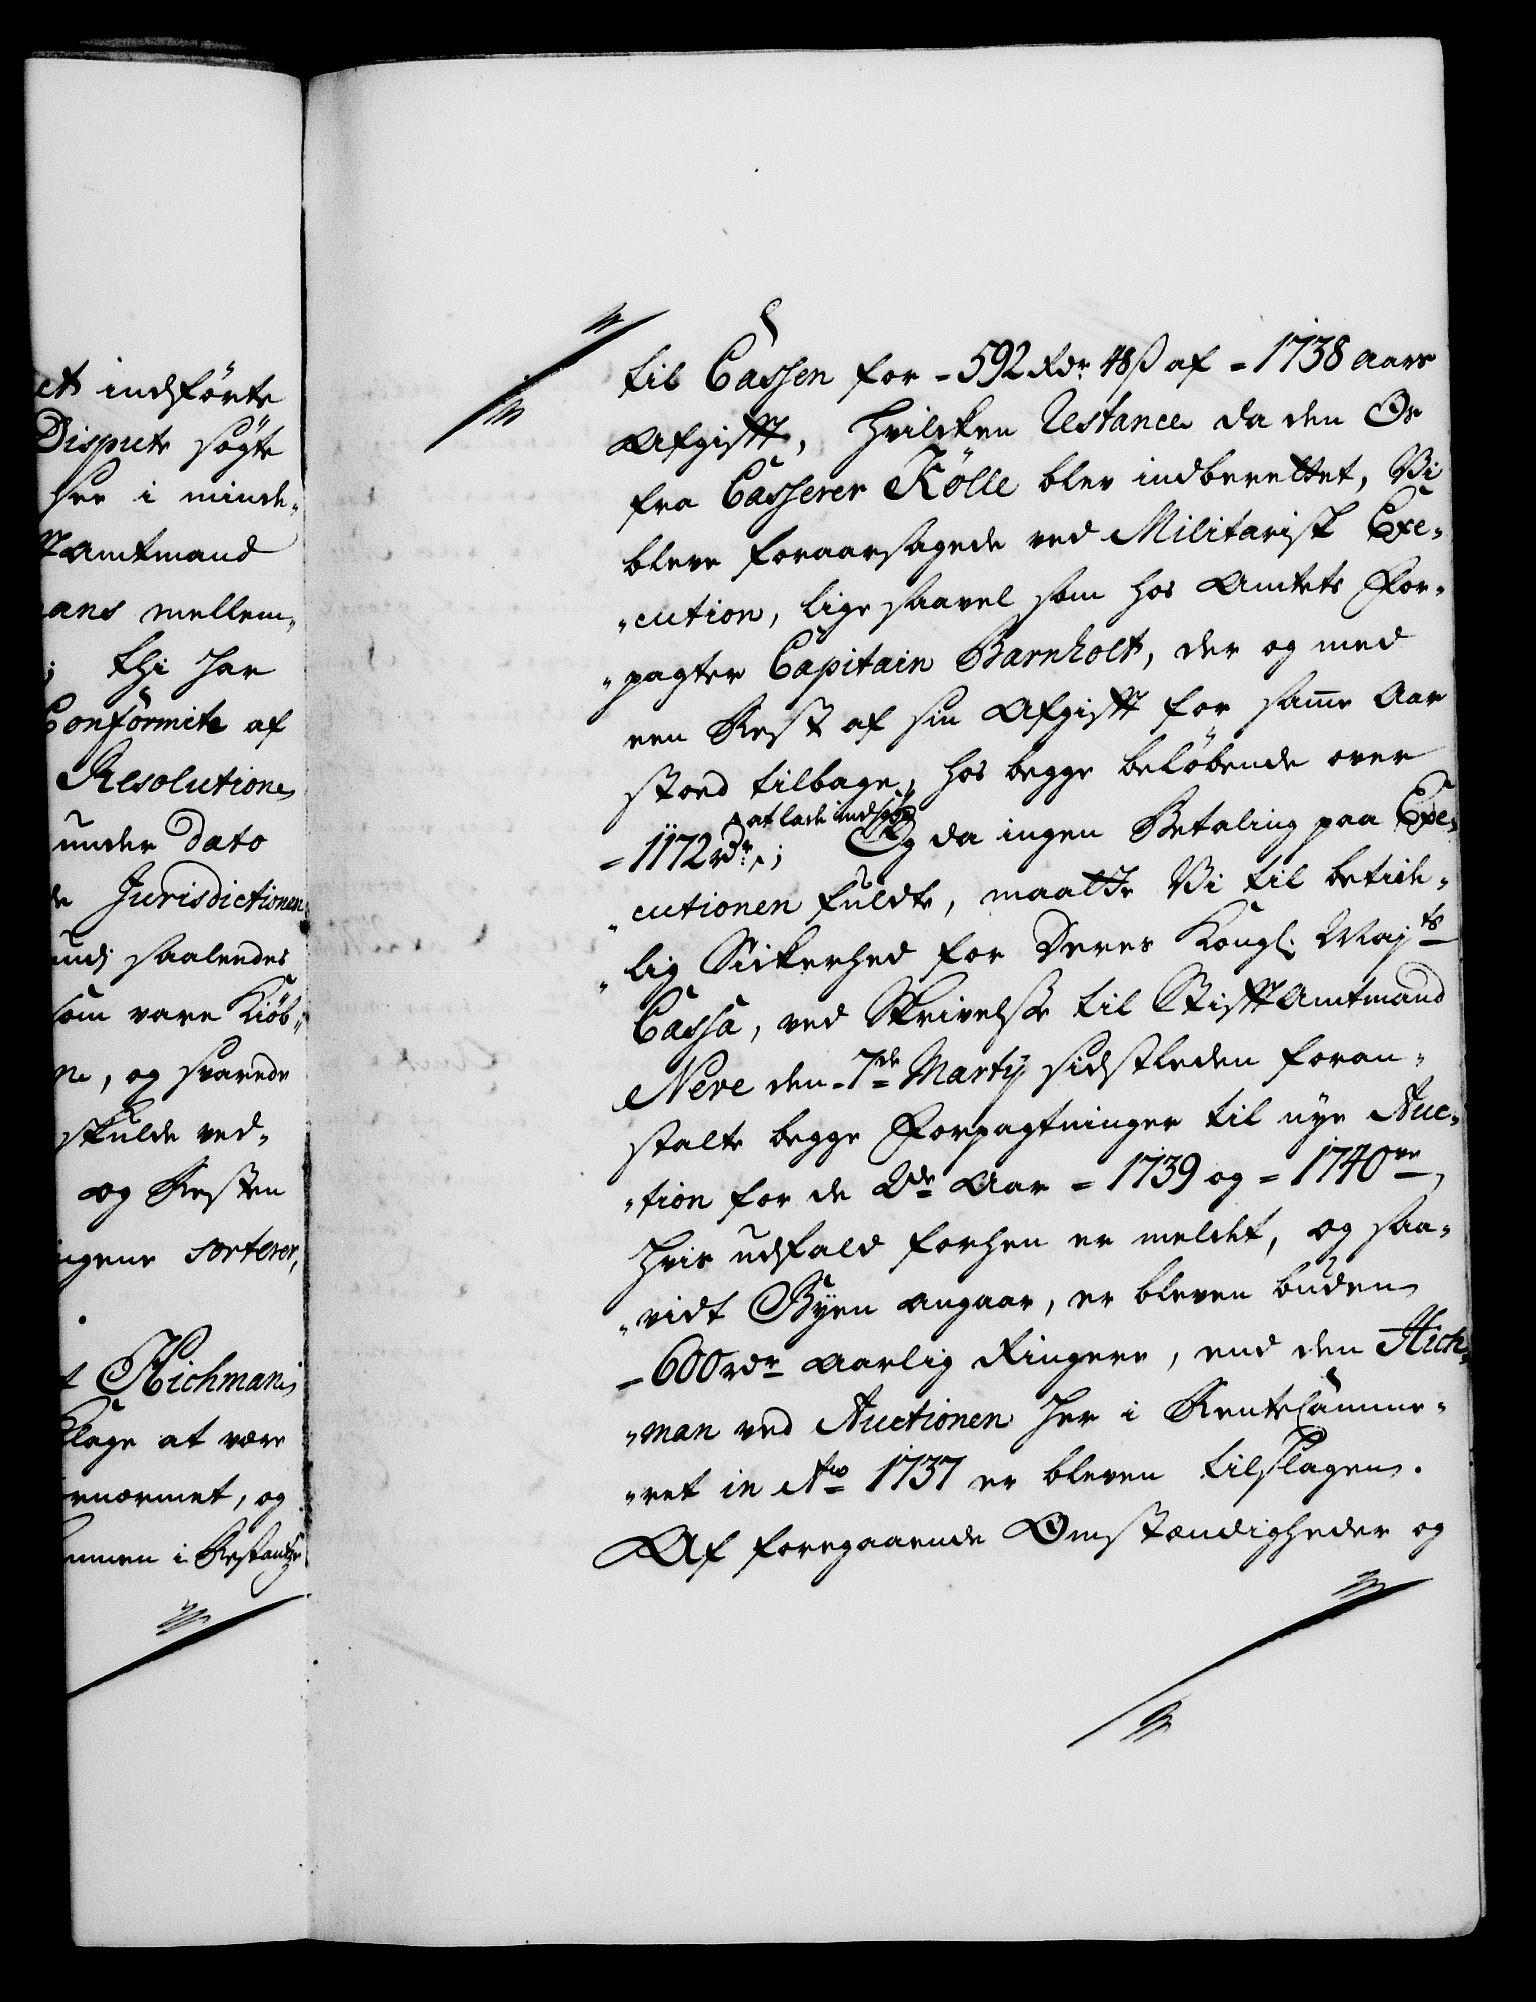 et indførte
Dispute søgte
her i minde„
ftamtmand
ans mellem„
; thi har
Conformite af
Resolution
under Dato
de Jurisdictionen
saaledes
som vare Kiøb„
ne, og svarede
skulde ved„
og Resten
ingene sorterer,
t Hichman
Klage at være
enormet, og
ommen i Restantze
til Cassen for = 592 Rdr 48 ß af = 1738 aars
Afgifft, hvilcken Restance da den Os
fra Casserer Kölle blev indberettet, Vi
bleve foraarsagede ved Militarisk Exe„
„cution, lige saavel som hos Amtets For„
„pagter Capitain Barnholt, der og med
een Rest af sin Afgifft for samme Aar
stoed tilbage, hos begge beløbende over
at lade indsøge
= 1172 rdr; Og da ingen Betaling paa Exe„
„cutionen fuldte, maatte Vi til betide„
„lig Sickerhed for Deres Kongl. Maj.ts
Cassa, ved Skrivelse til Stifftamtmand
Neve den = 7de Martij sidstleden foran„
stalte begge Forpagtninger til nye Auc„
„tion for de 2de Aar = 1739 og = 1740ve,
hvis udfald forhen er meldet, og saa„
„vidt Byen angaar, er bleven buden
= 600 rdr aarlig Ringere, end den Hich„
„man ved Auctionen her i Rentekamme„
„ret in Ao 1737 er bleven tilslagen.
Af foregaaende Omstændigheder og